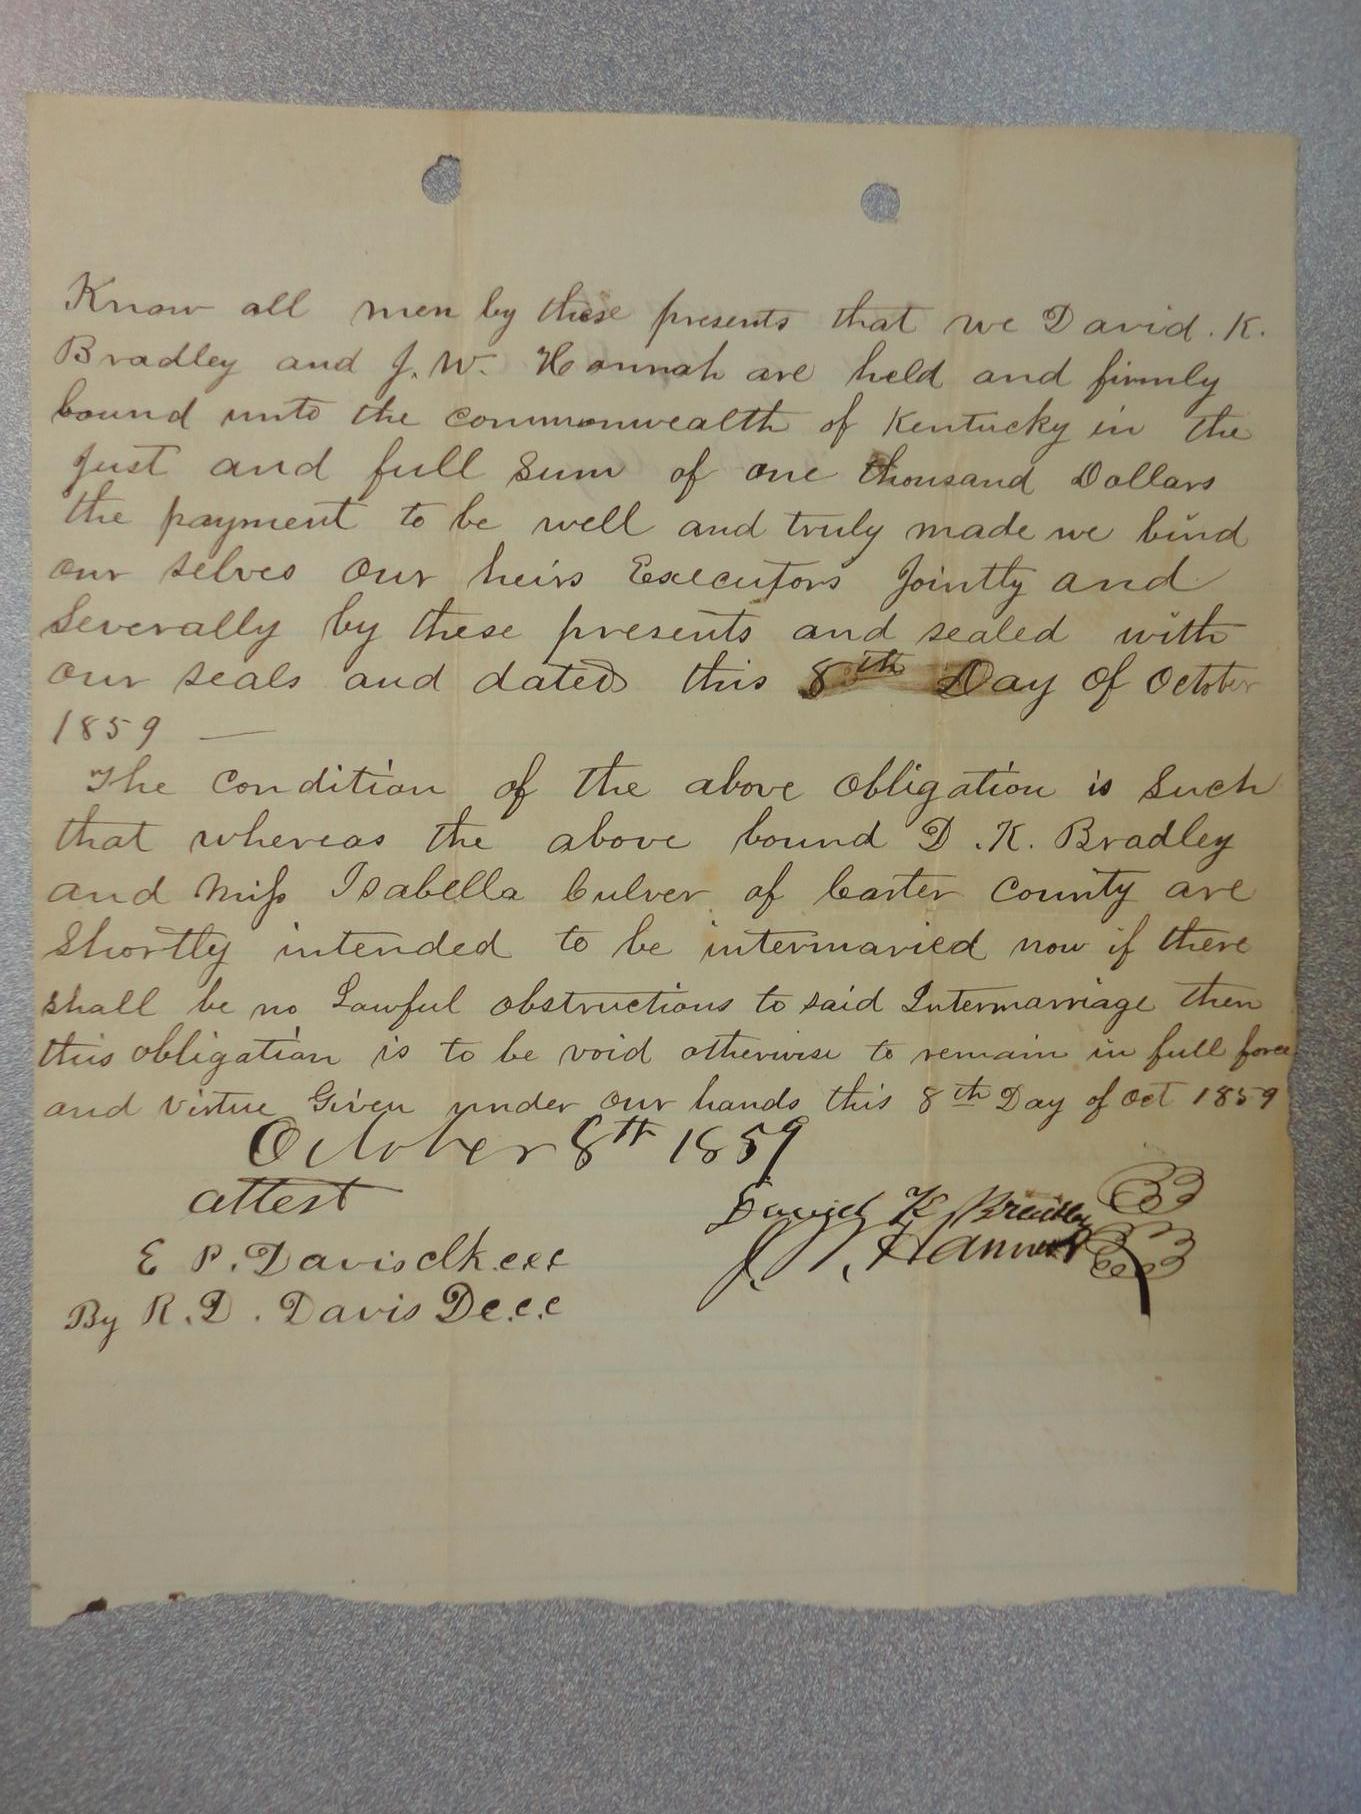 Know all men by these presents that we David. K.
Bradley and J. W. Hannah are held and firmly
bound unto the commonwealth of Kentucky in the
Just and full Sum of one thousand Dollars
the payment to be well and truly made we bind
our selves our heirs Executors Jointly and
Severally by these presents and sealed with
our seals and dated this 8th Day of October
1859 —
The Condition of the above obligation is Such
that whereas the above bound D. K. Bradley
and Miss Isabella Culver of Carter County are
Shortly intended to be intermaried now if there
shall be no Lawful obstructions to said Intermarriage then
this obligation is to be void otherwise to remain in full force
and virtue Given under our hands this 8th Day of Oct 1859
October 8th 1859
attest
David K Bradley
E P. Davis clk. c c c
J. W. Hannah
By R. D. Davis D c. c. c